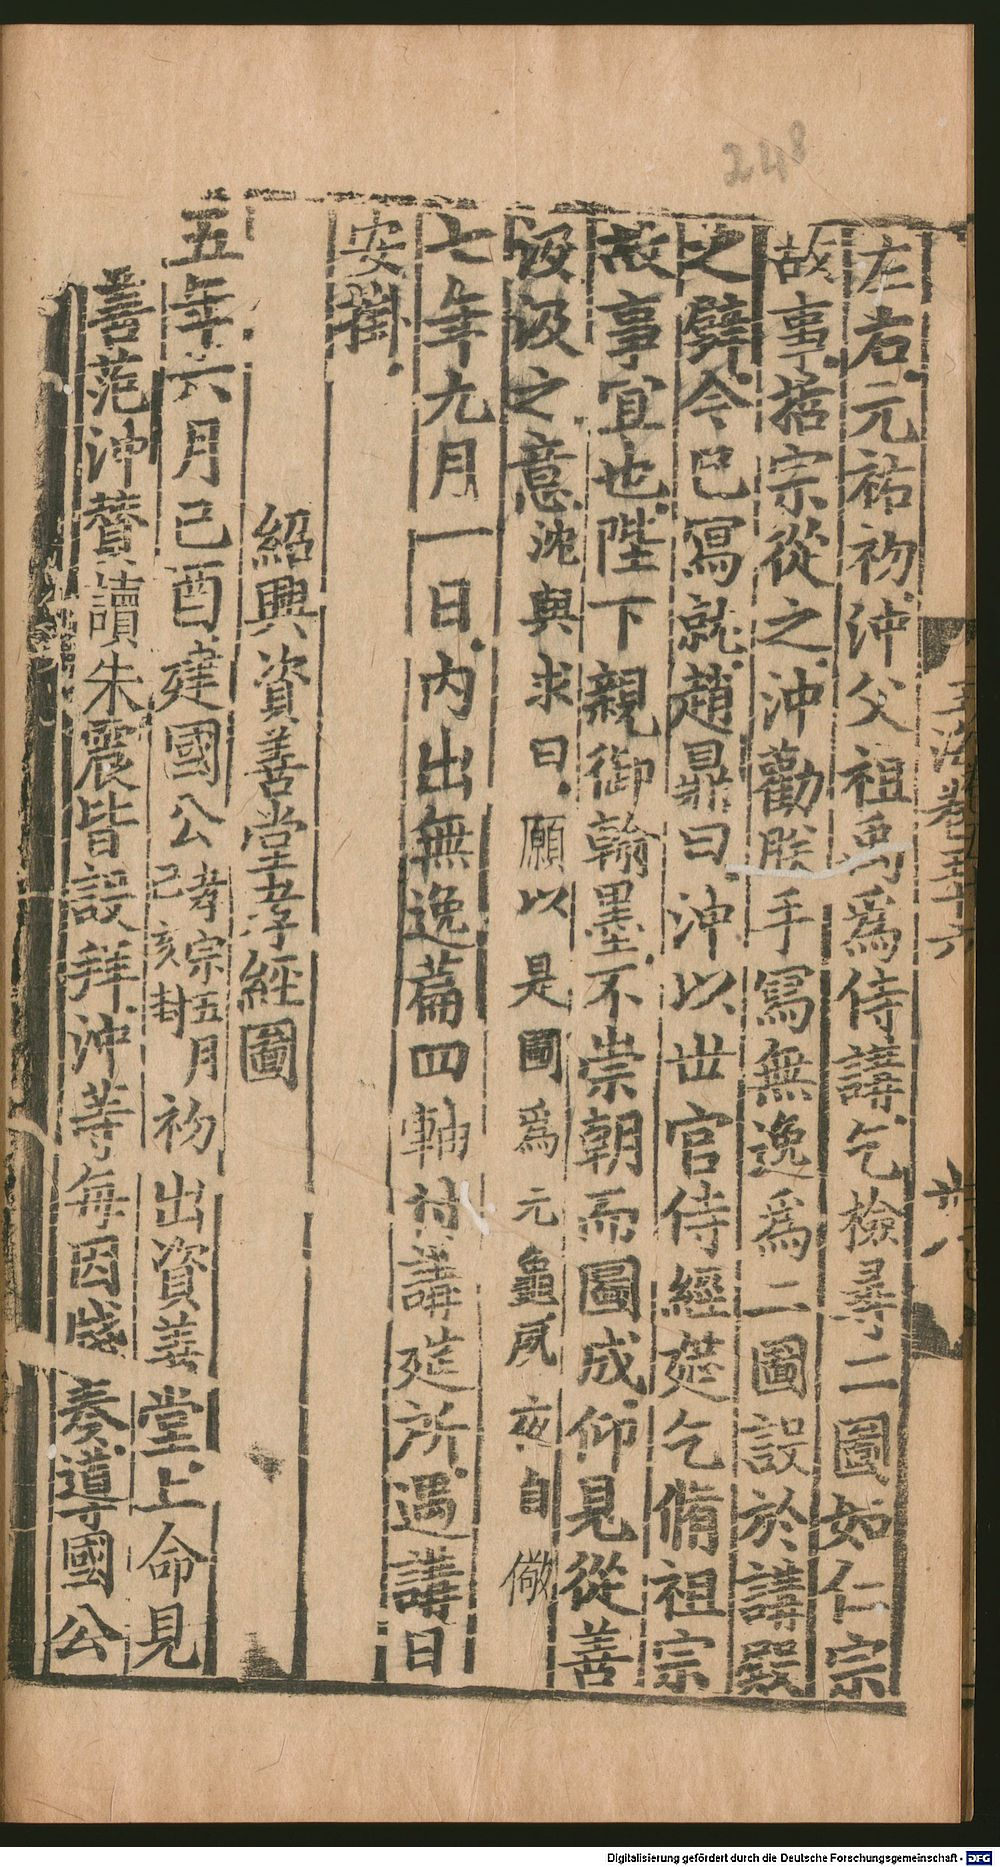 248
玉海卷五十六
廿八
左右元祐初沖父祖禹爲侍講乞檢尋二圖如仁宗
故事哲宗從之沖勸朕手寫無逸爲二圖設於講殿
之壁令已寫就趙鼎曰沖以世官侍經筵乞脩祖宗
故事宜也陛下親御翰墨不崇朝而圖成仰見從善
汲汲之意沈與求曰願以是圖爲元龜夙夜自儆
七年九月一日內出無逸篇四軸付講筵所遇講日
安掛
紹興資善堂孝經圖
五年六月己酉建國公孝宗五月己亥封初出資善堂上命見
善范沖贊讀朱震皆設拜沖等每因牋奏導國公
Digitalisierung gefördert durch die Deutsche Forschungsgemeinschaft - DFG